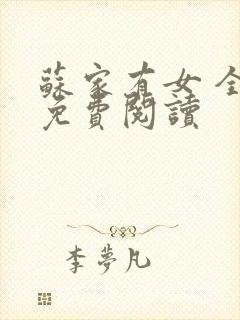 蘇家有女 全
免費閱讀
李夢凡